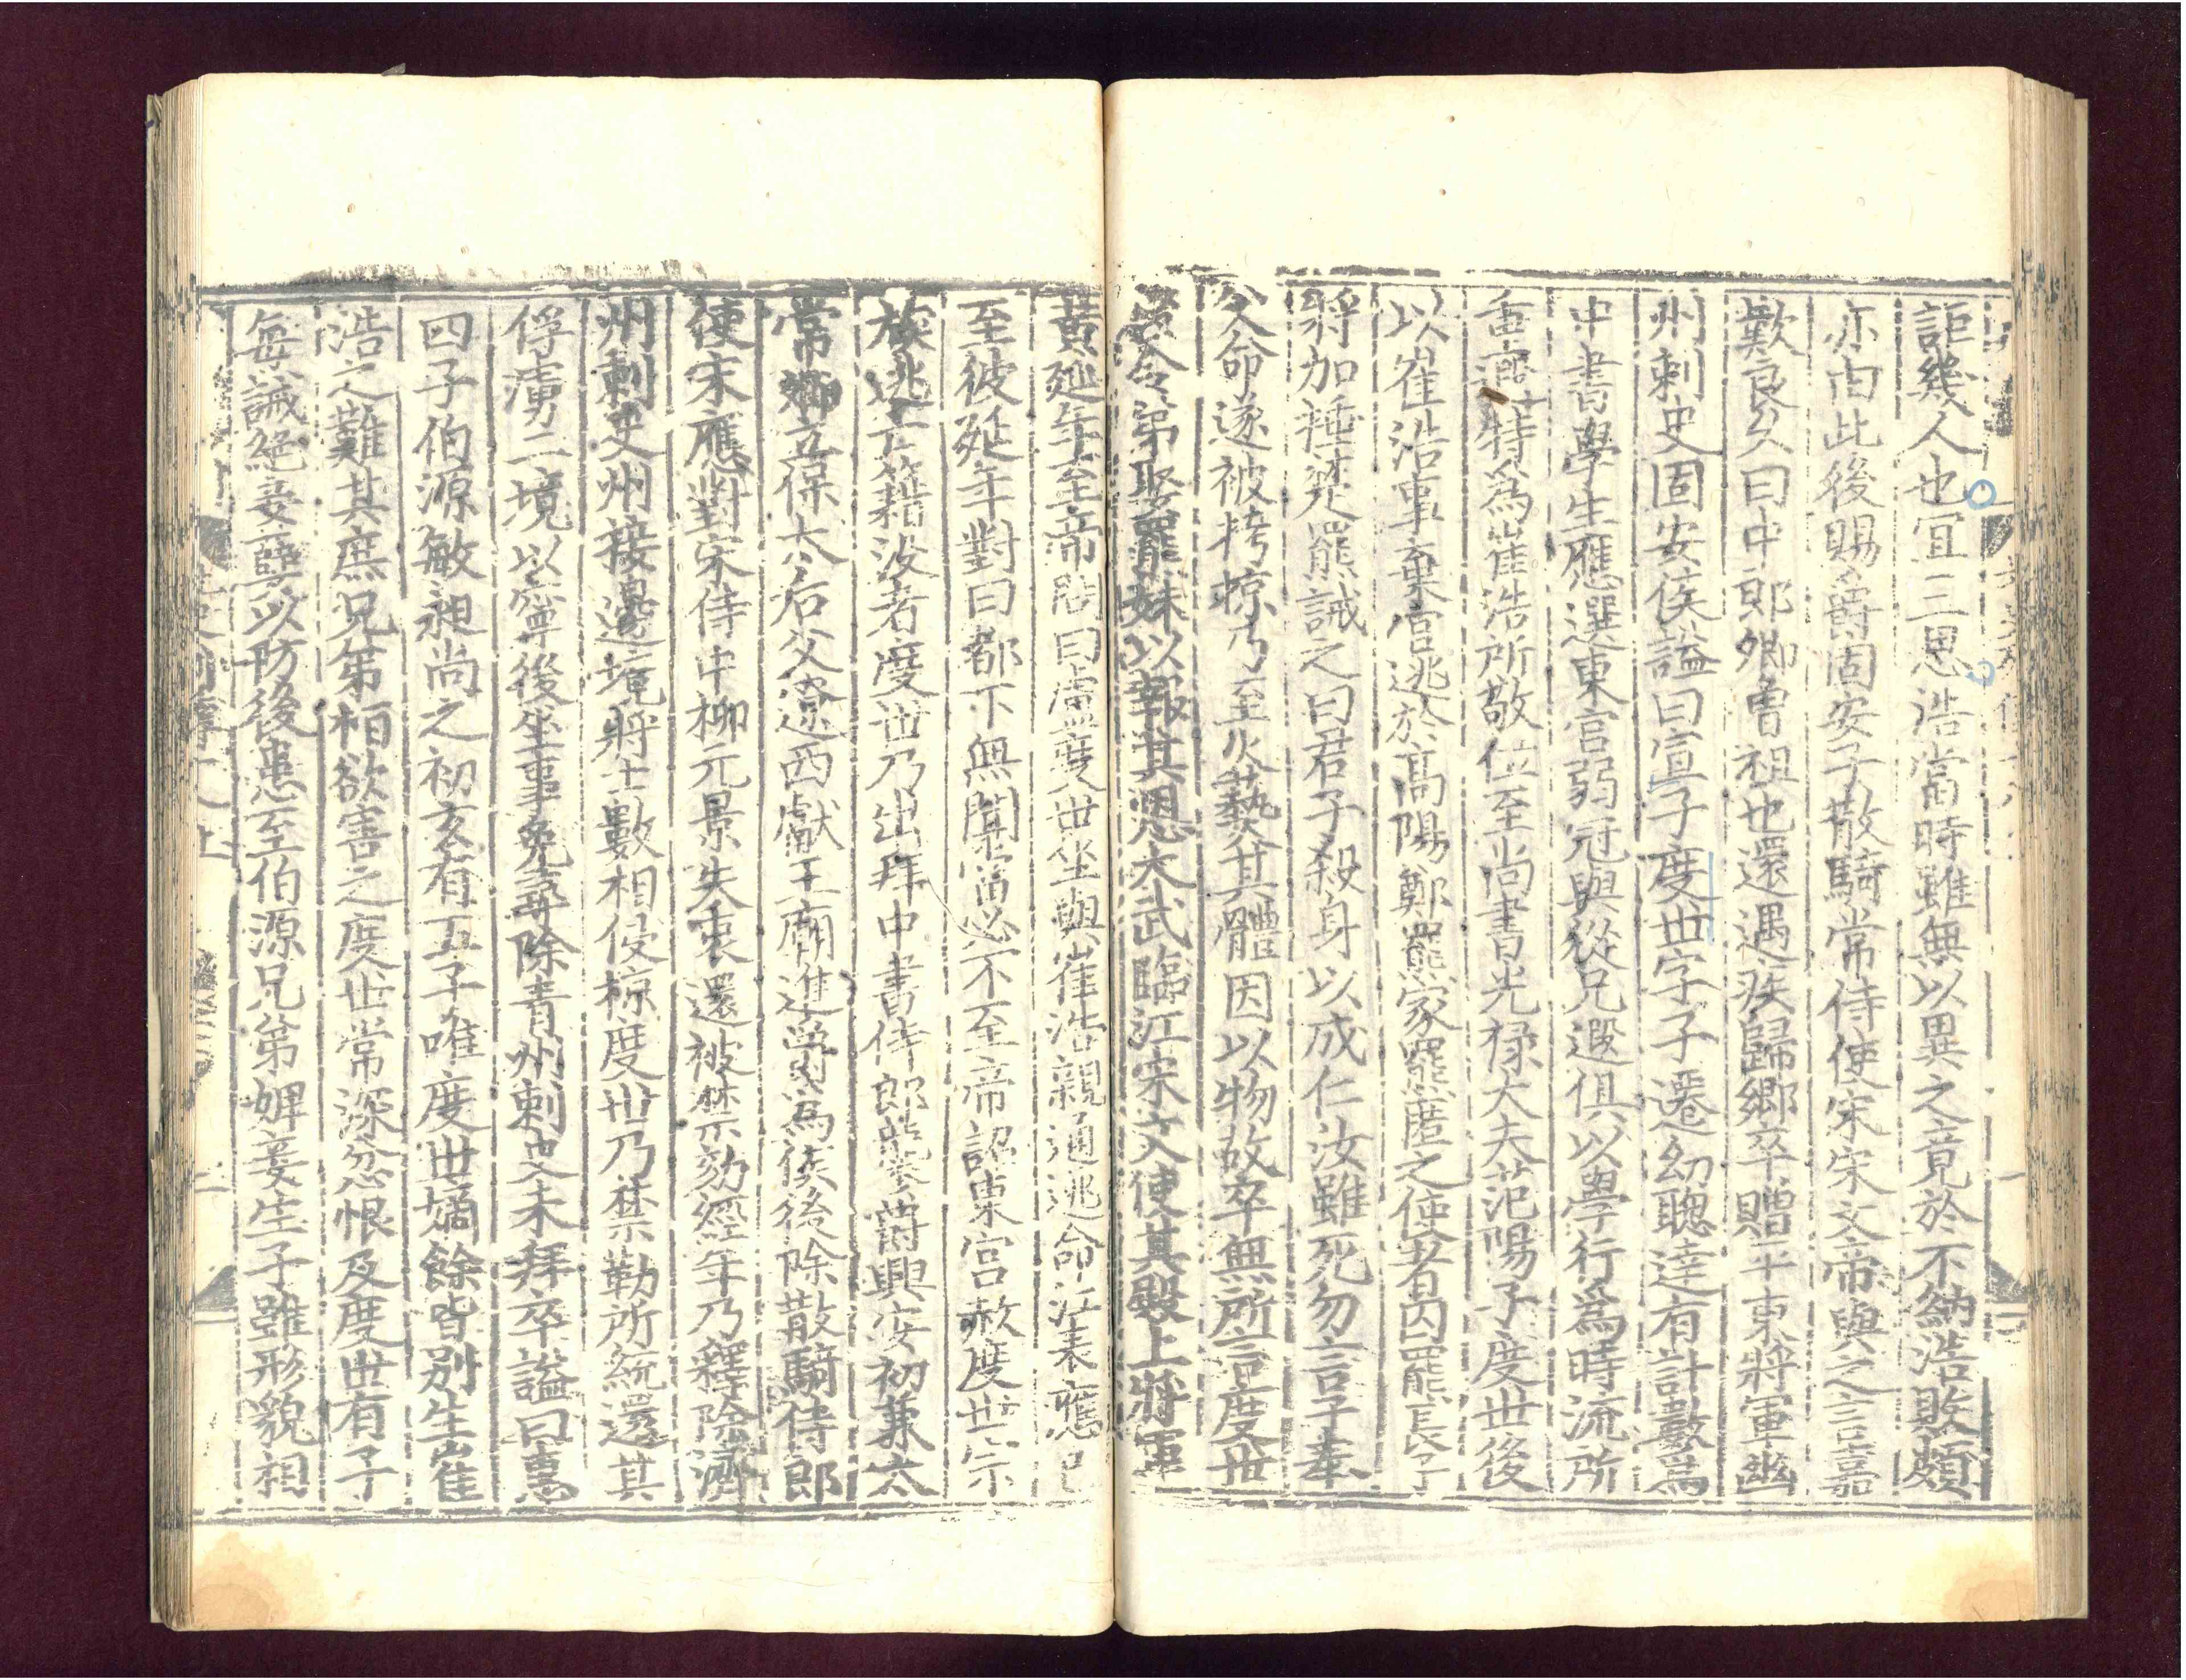 詎幾人也宜三思浩當時雖無以異之竟於不納浩敗頗
亦由此後賜爵固安子散騎常侍使宋宋文帝與之言嘉
歎良久曰中郎卿曾祖也還遇疾歸鄉卒贈平東將軍幽
州刺史固安侯謚曰宣子度世字子遷幼聰達有計數爲
中書學生應選東宮弱冠與從兄遐俱以學行爲時流所
重遐特爲崔浩所敬位至尚書光祿大夫范陽子度世後
以崔浩事棄官逃於高陽鄭羆家羆匿之使者囚羆長子
將加捶楚羆誡之曰君子殺身以成仁汝雖死勿言子奉
父命遂被栲掠乃至火爇其體因以物故卒無所言度世
後令弟娶羆妹以報其恩太武臨江宋文使其殿上將軍
黃延年至帝問曰盧度世坐與崔浩親通逃命江表應已
至彼延年對曰都下無聞當必不至帝詔東宮赦度世宗
族逃亡籍沒者度世乃出拜中書侍郎襲爵興安初兼太
常卿立保太后父遼西獻王廟進爵爲侯後除散騎侍郎
使宋應對宋侍中柳元景失衷還被禁劾經年乃釋除濟
州刺史州接邊境將士數相侵掠度世乃禁勒所統還其
俘虜二境以寧後坐事免尋除青州刺史未拜卒謚曰惠
四子伯源敏昶尚之初玄有五子唯度世嫡餘皆別生崔
浩之難其庶兄弟栢欲害之度世常深忿恨及度世有子
每誡絕妾孽以防後患至伯源兄弟婢妾生子雖形貌相